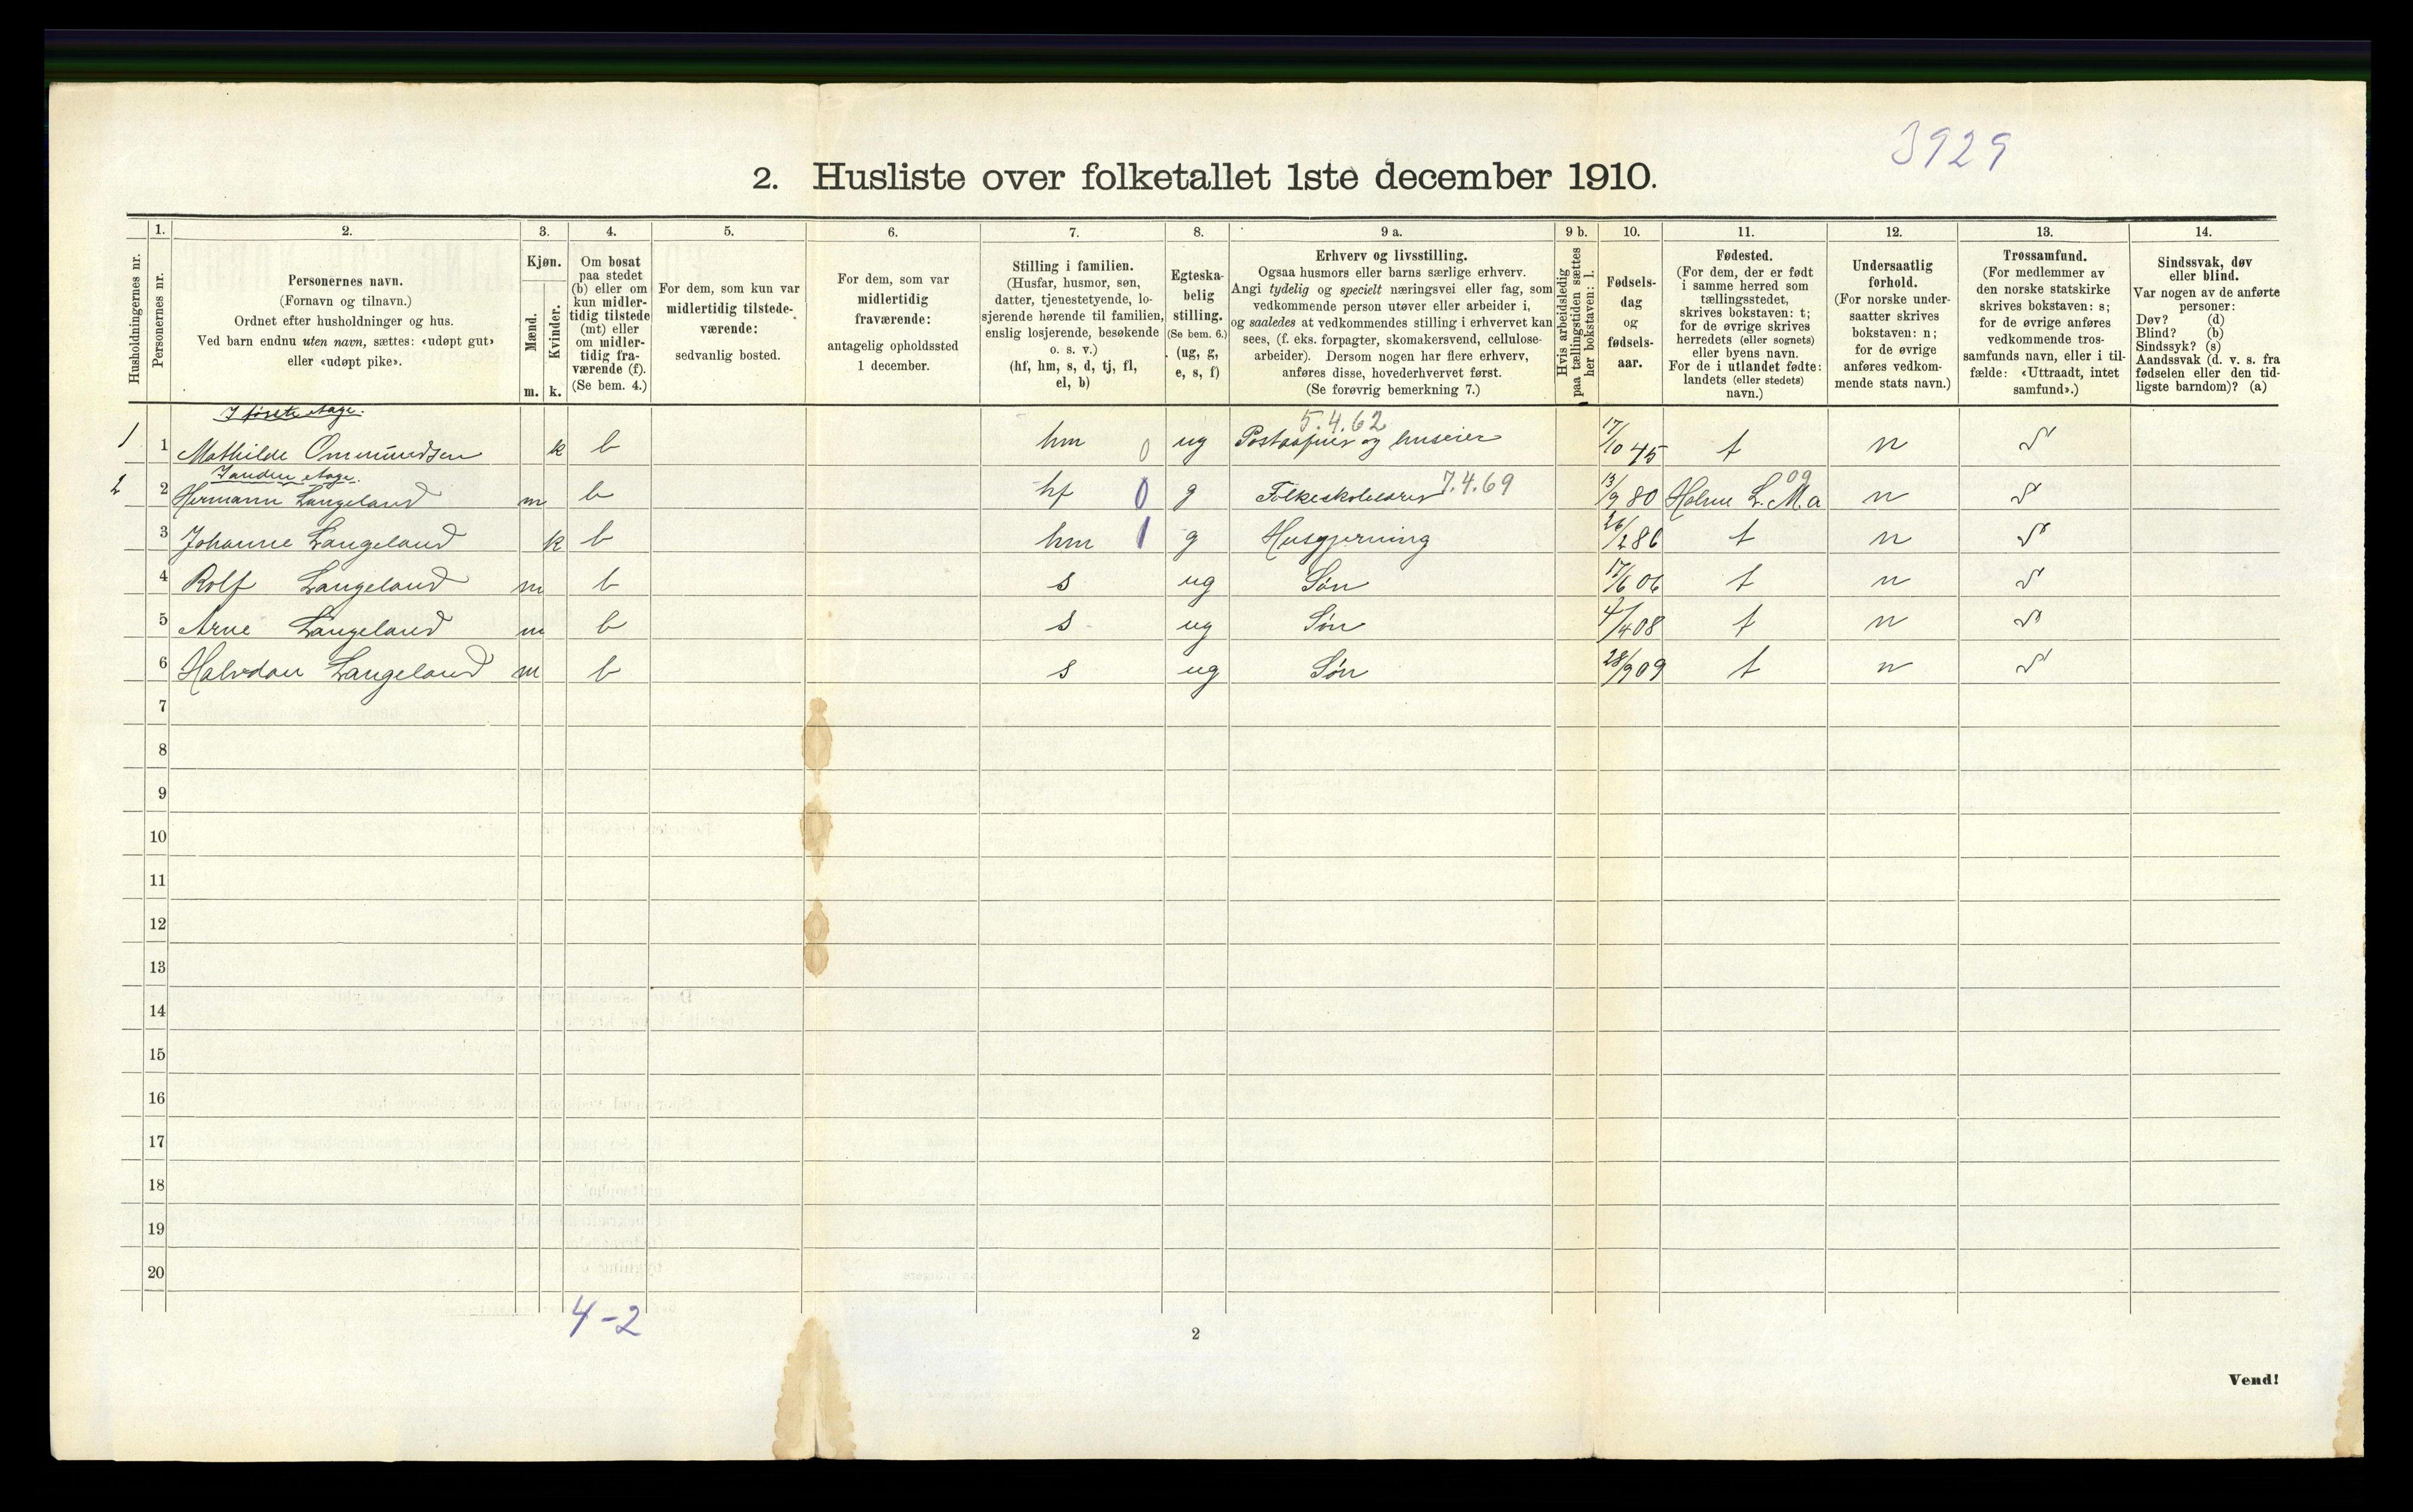 3929
2. Husliste over folketallet 1ste december 1910.
Husholdningernes nr.
1.
Personernes nr.
2.
Personernes navn.
(Fornavn og tilnavn.)
Ordnet efter husholdninger og hus.
Ved barn endnu uten navn, sættes: «udøpt gut»
eller «udøpt pike».
3.
Kjøn.
Mænd.
m.
Kvinder.
k.
4.
Om bosat
paa stedet
(b) eller om
kun midler-
tidig tilstede
(mt) eller
om midler-
tidig fra-
værende (f).
(Se bem. 4.)
5.
For dem, som kun var
midlertidig tilstede-
værende:
sedvanlig bosted.
6.
For dem, som var
midlertidig
fraværende:
antagelig opholdssted
1 december.
7.
Stilling i familien.
(Husfar, husmor, søn,
datter, tjenestetyende, lo-
sjerende hørende til familien,
enslig losjerende, besøkende
o. s. v.)
(hf, hm, s, d, tj, fl,
el, b)
8.
Egteska-
belig
stilling.
(Se bem. 6.)
(ug, g,
e, s, f)
9 a.
Erhverv og livsstilling.
Ogsaa husmors eller barns særlige erhverv.
Angi tydelig og specielt næringsvei eller fag, som
vedkommende person utøver eller arbeider i,
og saaledes at vedkommendes stilling i erhvervet kan
sees, (f. eks. forpagter, skomakersvend, cellulose-
arbeider). Dersom nogen har flere erhverv,
anføres disse, hovederhvervet først.
(Se forøvrig bemerkning 7.)
9 b.
Hvis arbeidsledig
paa tællingstiden sættes
her bokstaven: l.
10.
Fødsels-
dag
og
fødsels-
aar.
11.
Fødested.
(For dem, der er født
i samme herred som
tællingsstedet,
skrives bokstaven: t;
for de øvrige skrives
herredets (eller sognets)
eller byens navn.
For de i utlandet fødte:
landets (eller stedets)
navn.)
12.
Undersaatlig
forhold.
(For norske under-
saatter skrives
bokstaven: n;
for de øvrige
anføres vedkom-
mende stats navn.)
13.
Trossamfund.
(For medlemmer av
den norske statskirke
skrives bokstaven: s;
for de øvrige anføres
vedkommende tros-
samfunds navn, eller i til-
fælde: «Uttraadt, intet
samfund».)
14.
Sindssvak, døv
eller blind.
Var nogen av de anførte
personer:
Døv? (d)
Blind? (b)
Sindssyk? (s)
Aandssvak (d. v. s. fra
fødselen eller den tid-
ligste barndom)? (a)
I første etage. 5.4.62
1 1 Mathilde Ommundsen k b hm 0 ug Postaapner og huseier 17/10 45 t n s
I anden etage.
2 2 Hermann Langeland m b hf 0 g Folkeskolelærer 7.4.69 13/9 80 Holum L. M. a 09 n s
3 Johanne Langeland k b hm 1 g Husgjerning 26/2 86 t n s
4 Rolf Langeland m b s ug Søn 17/6 06 t n s
5 Arne Langeland m b s ug Søn 4/4 08 t n s
6 Halvdan Langeland m b s ug Søn 28/9 09 t n s
7
8
9
10
11
12
13
14
15
16
17
18
19
20
4-2
2
Vend!